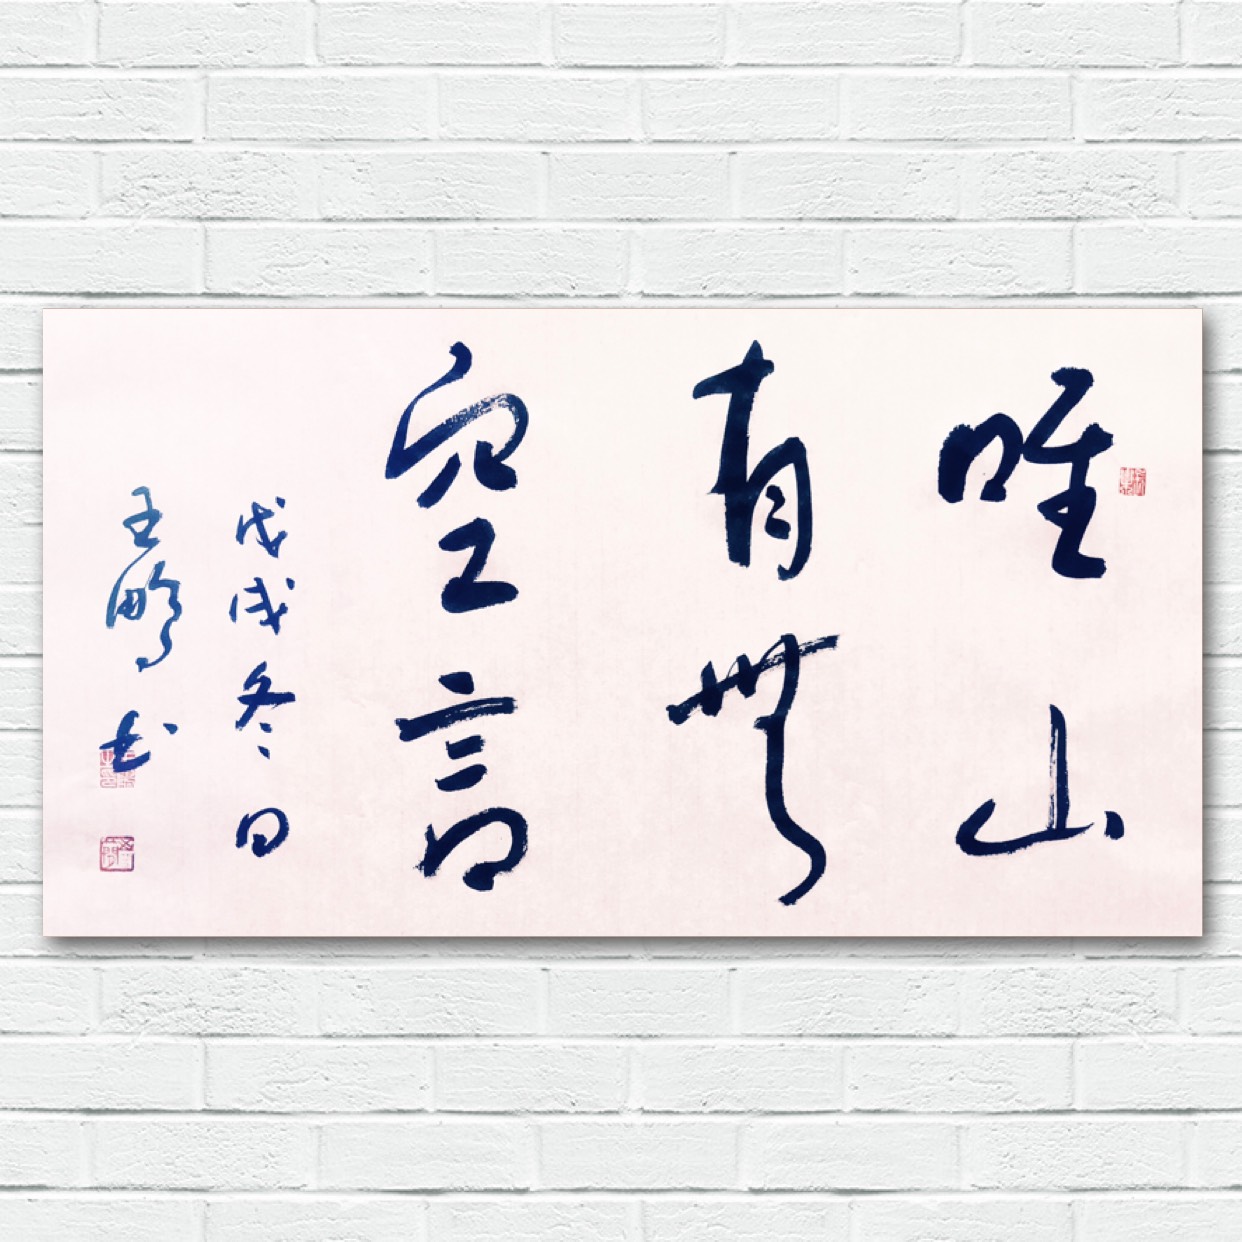 唯山
有無
空言
戊戌冬日
王鹏书